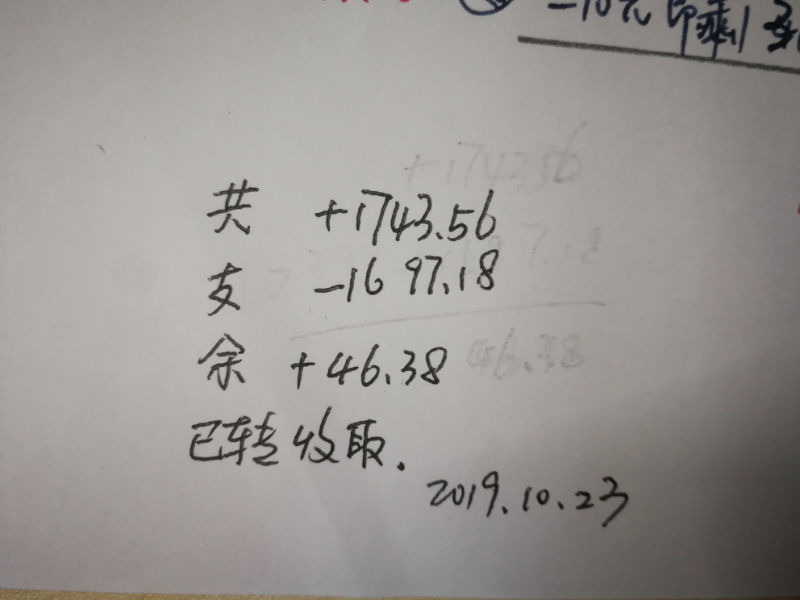 -10元 印剩
共 +1743.56
支 -1697.18
余 +46.38
已转收取.
2019.10.23